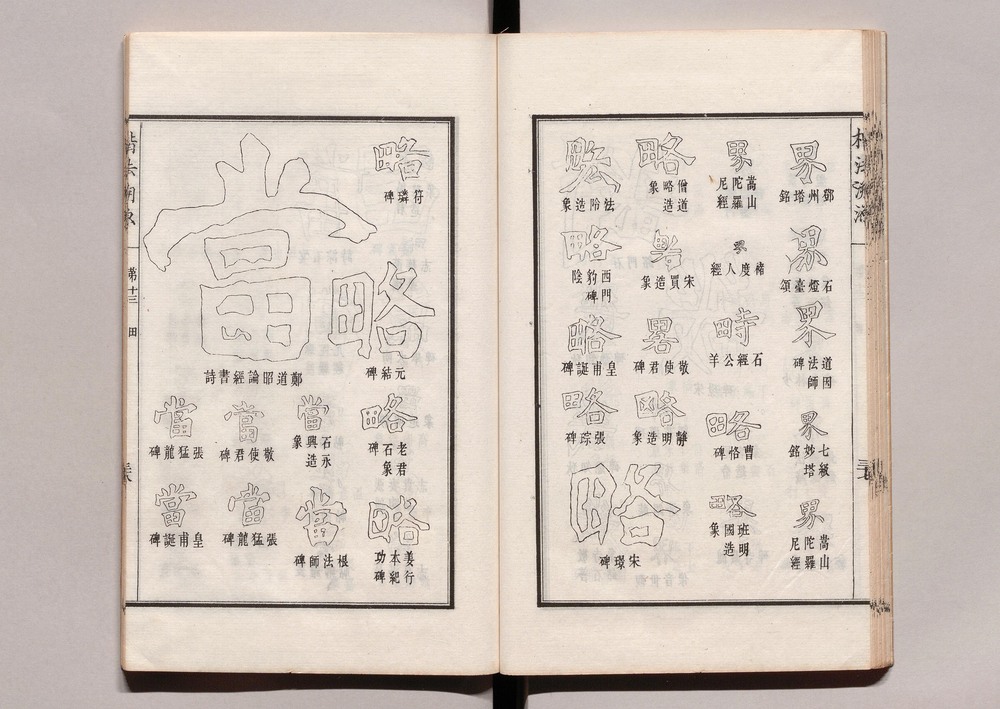 楷法溯源
界
鄧州塔銘
界
石燈臺頌
界
道因法師碑
界
七級妙塔銘
界
嵩山陀羅尼經
界
嵩山陀羅尼經
界
褚度人經
畤
石經公羊
略
曹恪碑
略
班明國造象
略
僧道略造象
畧
宋買造象
畧
敬使君碑
略
靜明造象
略
法隂造象
略
西門豹碑陰
略
皇甫誕碑
略
張琮碑
略
宋璟碑
略
符璘碑
略
元結碑
略
老君石象碑
略
姜行本紀功碑
當
鄭道昭論經書詩
當
石永興造象
當
根法師碑
當
敬使君碑
當
張猛龍碑
當
張猛龍碑
當
皇甫誕碑
楷法溯源
第十三
田